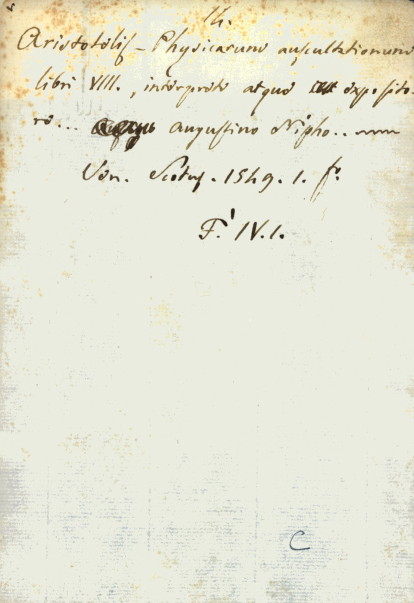 14.
Aristotelis - Physicarum auscultationum
libri VIII., interprete atque exposito-
re... Augustino Nipho..
Ven. Scotus. 1549. 1. f.º
F.' IV.1.
C